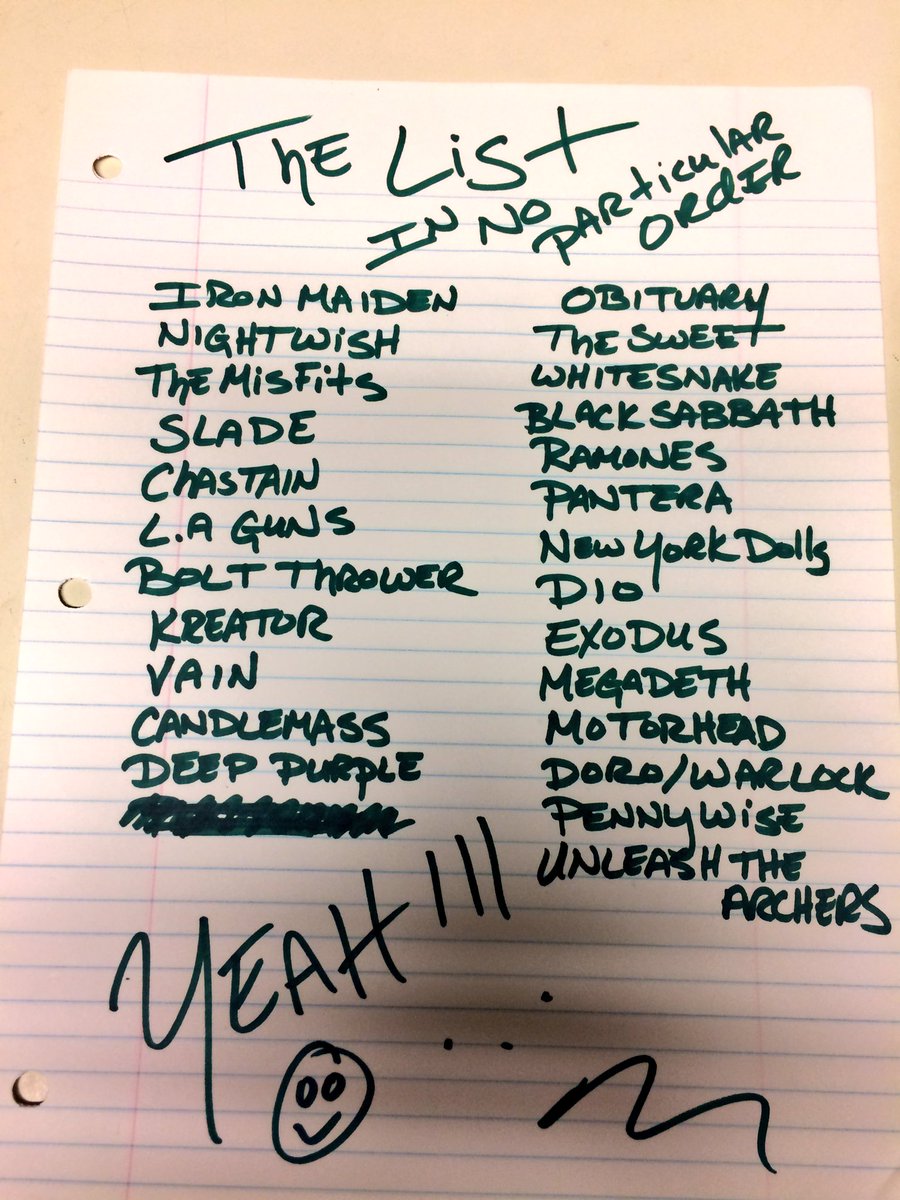 The List
IN NO PARTICULAR
ORDER
IRON MAIDEN
NIGHTWISH
The MISFITS
SLADE
CHASTAIN
L.A GUNS
BOLT THROWER
KREATOR
VAIN
CANDLEMASS
DEEP PURPLE
OBITUARY
The SWEET
WHITESNAKE
BLACK SABBATH
RAMONES
PANTERA
New York Dolls
DIO
EXODUS
MEGADETH
MOTORHEAD
DORO/WARLOCK
PENNYWISE
UNLEASH THE
ARCHERS
YEAH!!!